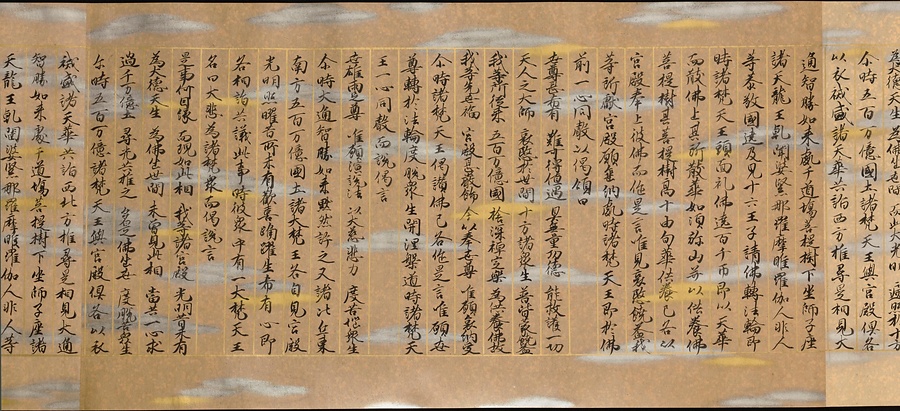 為大德天生 為佛生世間 而此大光明 遍照於十方
尒時五百万億國土諸梵天王與宮殿俱各
以衣祴盛諸天華共詣西方推尋是相見大
通智勝如來處于道場菩提樹下坐師子座
諸天龍王乾闥婆緊那羅摩睺羅伽人非人
等恭敬圍遶及見十六王子請佛轉法輪即
時諸梵天王頭面礼佛遶百千帀即以天華
而散佛上其所散華如須弥山并以供養佛
菩提樹其菩提樹高十由旬華供養已各以
宮殿奉上彼佛而作是言唯見哀愍饒益我
等所獻宮殿願垂納處時諸梵天王即於佛
前一心同聲以偈頌曰
世尊甚希有 難可得值遇 具無量功德 能救護一切
天人之大師 哀愍於世間 十方諸衆生 普皆蒙饒益
我等所從來 五百万億國 捨深禪定樂 為供養佛故
我等先世福 宮殿甚嚴飾 今以奉世尊 唯願哀納受
尒時諸梵天王偈讃佛已各作是言唯願世
尊轉於法輪度脫衆生開涅槃道時諸梵天
王一心同聲而說偈言
世雄兩足尊 唯願演說法 以大慈悲力 度苦惱衆生
尒時大通智勝如來默然許之又諸比丘東
南方五百万億國土諸大梵王各自見宮殿
光明照曜昔所未有歡喜踊躍生希有心即
各相詣共議此事時彼衆中有一大梵天王
名曰大悲為諸梵衆而說偈言
是事何因緣 而現如此相 我等諸宮殿 光明昔未有
為大德天生 為佛生世間 未曾見此相 當共一心求
過千万億土 尋光共推之 多是佛出世 度脫苦衆生
尒時五百万億諸梵天王與宮殿俱各以衣
祴盛諸天華共詣西北方推尋是相見大通
智勝如來處于道場菩提樹下坐師子座諸
天龍王乾闥婆緊那羅摩睺羅伽人非人等